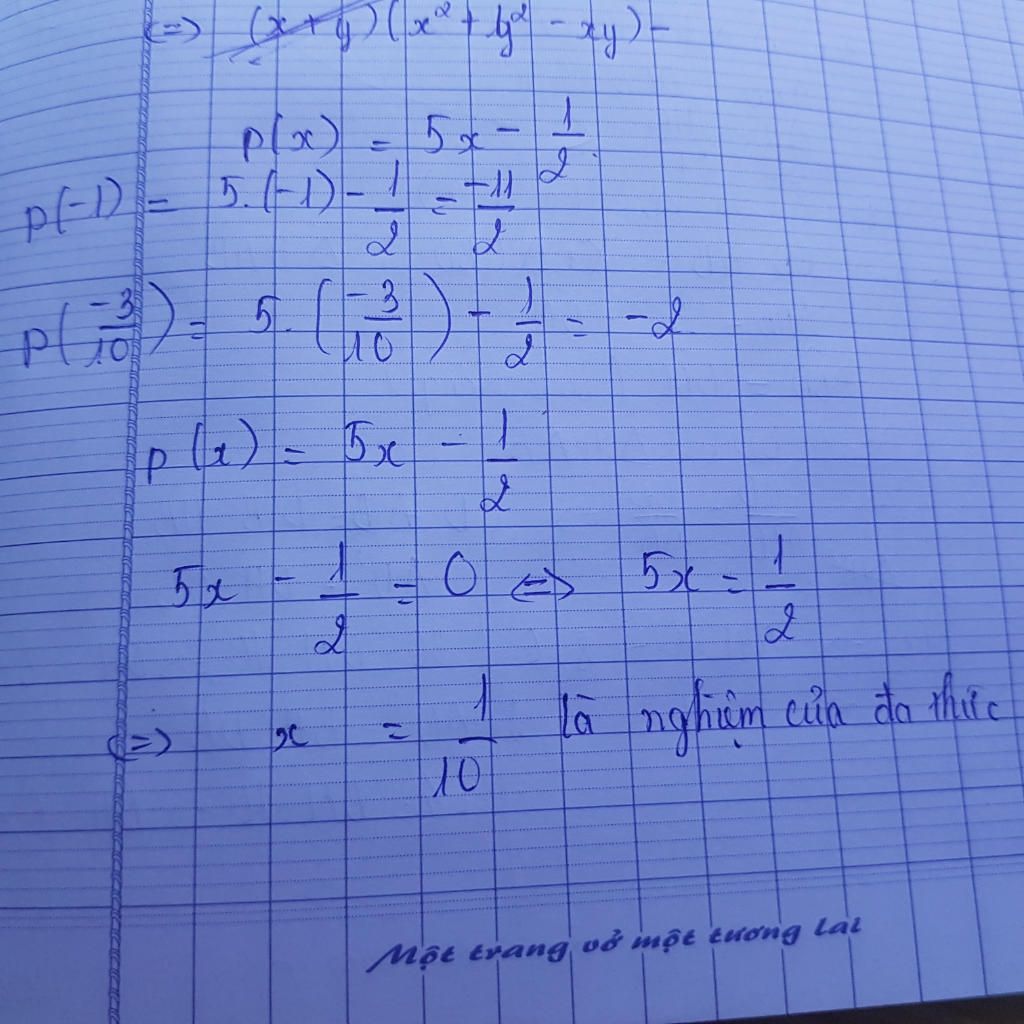 <=> (x + y)(x² + y² - xy) -
p(x) = 5x - 1/2
p(-1) = 5.(-1) - 1/2 = -11/2
p(-3/10) = 5.(-3/10) - 1/2 = -2
p(x) = 5x - 1/2
5x - 1/2 = 0 <=> 5x = 1/2
<=> x = 1/10 là nghiệm của đa thức
Một trang vở một tương lai